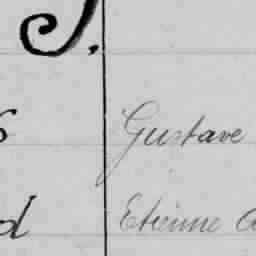 J.
s Gustave
d Etienne a